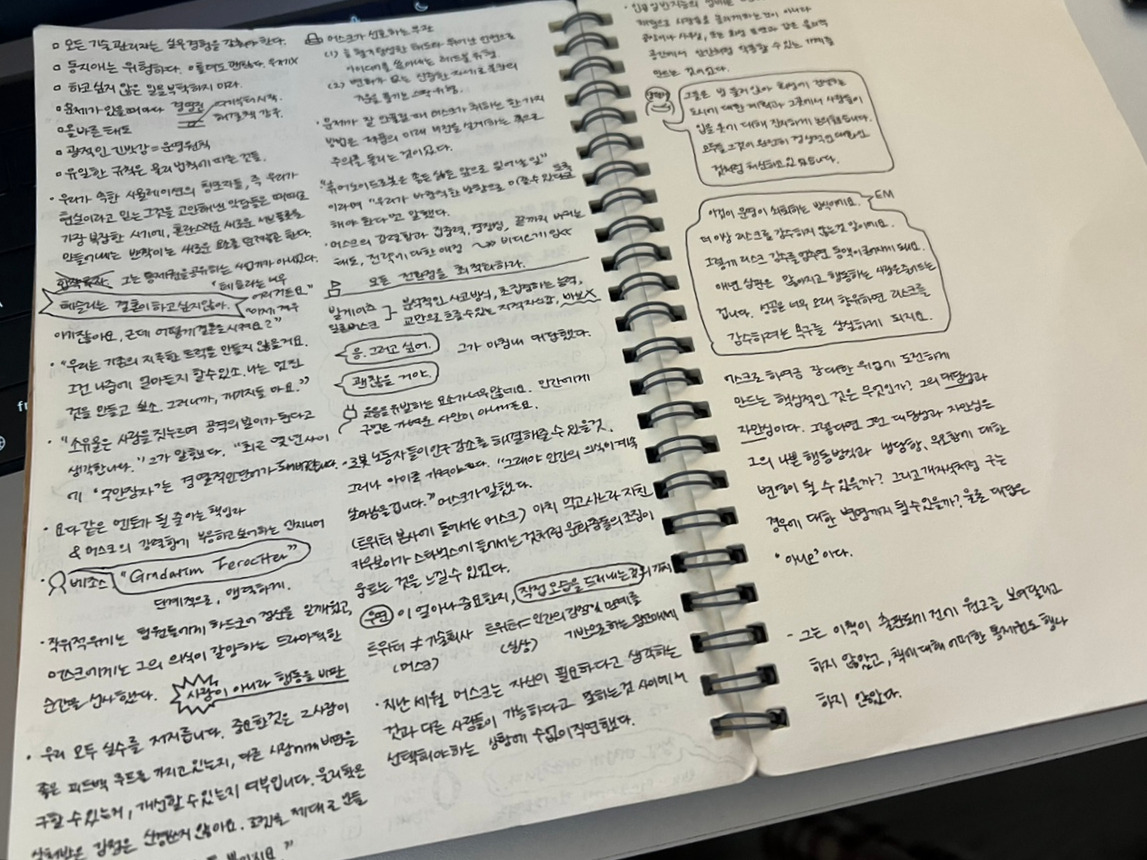 □ 모든 기술 관리자는 실무 경험을 갖춰야 한다.
□ 동지애는 위험하다.
□ 하고 싶지 않은 일을 부탁하지 마라.
□ 문제가 있을 때마다
□ 올바른 태도
□ 광적인 긴박감 = 운영원칙
□ 유일한 규칙은 물리 법칙에 따른 것들.
· 우리가 속한 시뮬레이션의 창조자들, 즉 우리가
현실이라고 믿는 그것을 고안해낸 악당들은 때때로
가장 복잡한 시기에, 혼란스러운 새로운 서브플롯을
만들어내는 반짝이는 새로운 요소를 던져놓곤 한다.
그는 통제권을 공유하는 사업가가 아니었다.
"테슬라는 너무
어리거든요."
테슬라는 결혼하고 싶지 않아.
아기잖아요, 근데 어떻게 결혼을 시켜요?"
· "우리는 기존의 지루한 트럭을 만들지 않을거요.
그건 나중에 얼마든지 할 수 있소. 나는 멋진
것을 만들고 싶소. 그러니까, 까지도 마요."
· "소유물은 사람을 짓누르며 공격의 빌미가 된다고
생각한니다." 그가 말했다. "최근 몇 년 사이
에 '억만장자'는 경멸적인 단어가 되어버렸습니다.
· 요다 같은 멘토가 될 줄 아는 책임자
& 머스크의 강렬함에 부응하고 싶어하는 엔지니어
· 베조스 "Gradatim Ferociter"
단계적으로, 맹렬하게.
순간을 선사했다.
사람이 아니라 행동을 비판
· 우리 모두 실수를 저지릅니다. 중요한 것은 그 사람이
좋은 피드백 루프를 가지고 있는지, 다른 사람에게 비판을
구할 수 있는지, 개선할 수 있는지 여부입니다. 물리학은
상처받은 감정은 신경쓰지 않아요. 로켓을 제대로 만들
머스크가 선호하는 부관
(1)
아이디어를 쏟아내는 레드불 유형
(2)
· 문제가 잘 안 풀릴 때 머스크가 취하는 한 가지
방법은 제품의 미래 버전을 설계하는 쪽으로
주의를 돌리는 것이었다.
"휴머노이드 로봇은 좋든 싫든 앞으로 일어날 일"
이라며 "우리가 바람직한 방향으로 이끌 수 있다고
해야 한다"고 말했다.
· 머스크의 강렬함과 집중력, 경쟁심, 끝까지 버티는
태도, 전략에 대한 애정
모든 전환점을 최적화하라.
빌게이츠
일론머스크
분석적인 사고방식, 초집중하는 능력,
교만으로 흐를 수 있는 지적 자신감, 바보X
응. 그러고 싶어.
그가 마침내 대답했다.
괜찮을 거야.
웃음을 유발하는 요소가 너무 많네요. 인간에게
구멍은 가벼운 사안이 아니거든요.
· 로봇 노동자들이 인구 감소를 해결해줄 수 있을 것.
그러나 아이를 가져야 한다. "그래야 인간의 의식이 계속
살아남을 겁니다." 머스크가 말했다.
(트위터 본사에 들어서는 머스크) 마치 먹고사느라 지친
카우보이가 스타벅스에 들어서는 것처럼 문화 충돌의 조짐이
움트는 것을 느낄 수 있었다.
우연 이 얼마나 중요한지, 직접 모습을 드러내는 것의 가치
트위터 ≠ 기술회사
(머스크)
트위터 = 인간의 감정 및 관계를
(실상)
기반으로 하는 광고매체
· 지난 세월 머스크는 자신이 필요하다고 생각하는
것과 다른 사람들이 가능하다고 말하는 것 사이에서
선택해야 하는 상황에 수없이 직면했다.
공장이나 사무실, 또는 화성 표면과 같은 물리적
공간에서 인간처럼 작동할 수 있는 기계를
만드는 것이었다.
그들은 몇 분이 지나 화성에 건설하는
도시에 대한 계획과 그곳에서 사람들이
입을 옷에 대해 진지하게 논의했습니다.
모두들 그것이 완전히 정상적인 대화인
것처럼 처신하고 있었습니다.
EM
이것이 문명이 쇠퇴하는 방식이에요.
더 이상 리스크를 감수하지 않는 것 말이에요.
그렇게 리스크 감수를 멈추면 동맥이 굳어지게 돼요.
매년 심판은 많아지고 행동하는 사람은 줄어드는
겁니다. 성공을 너무 오래 향유하면 리스크를
감수하려는 욕구를 상실하게 되지요.
머스크로 하여금 장대한 위업에 도전하게
만드는 핵심적인 것은 무엇인가? 그의 대담성과
자만심이다. 그렇다면 그런 대담성과 자만심은
그의 나쁜 행동방식과 냉담함, 무모함에 대한
변명이 될 수 있을까? 그리고 개자식처럼 구는
경우에 대한 변명까지 될 수 있을까? 물론 대답은
'아니오'이다.
- 그는 이 책이 출판되기 전에 원고를 보여달라고
하지 않았고, 책에 대해 어떠한 통제권도 행사
하지 않았다.